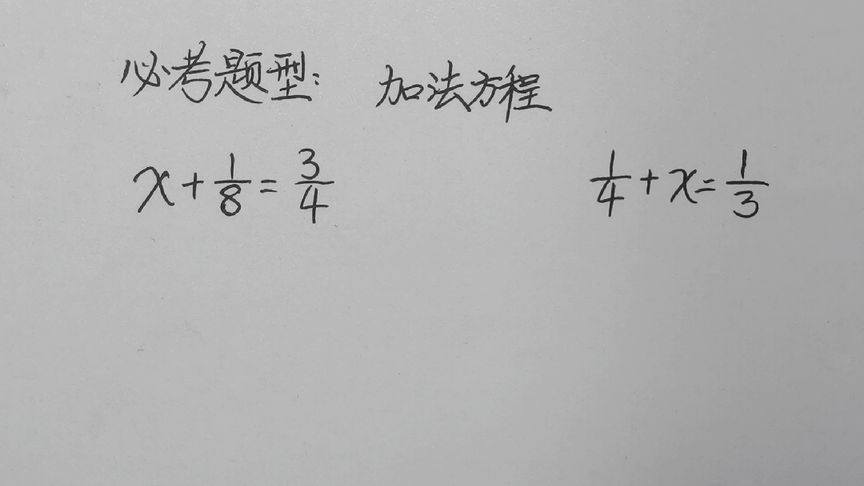 必考题型: 加法方程
x + 1/8 = 3/4 1/4 + x = 1/3